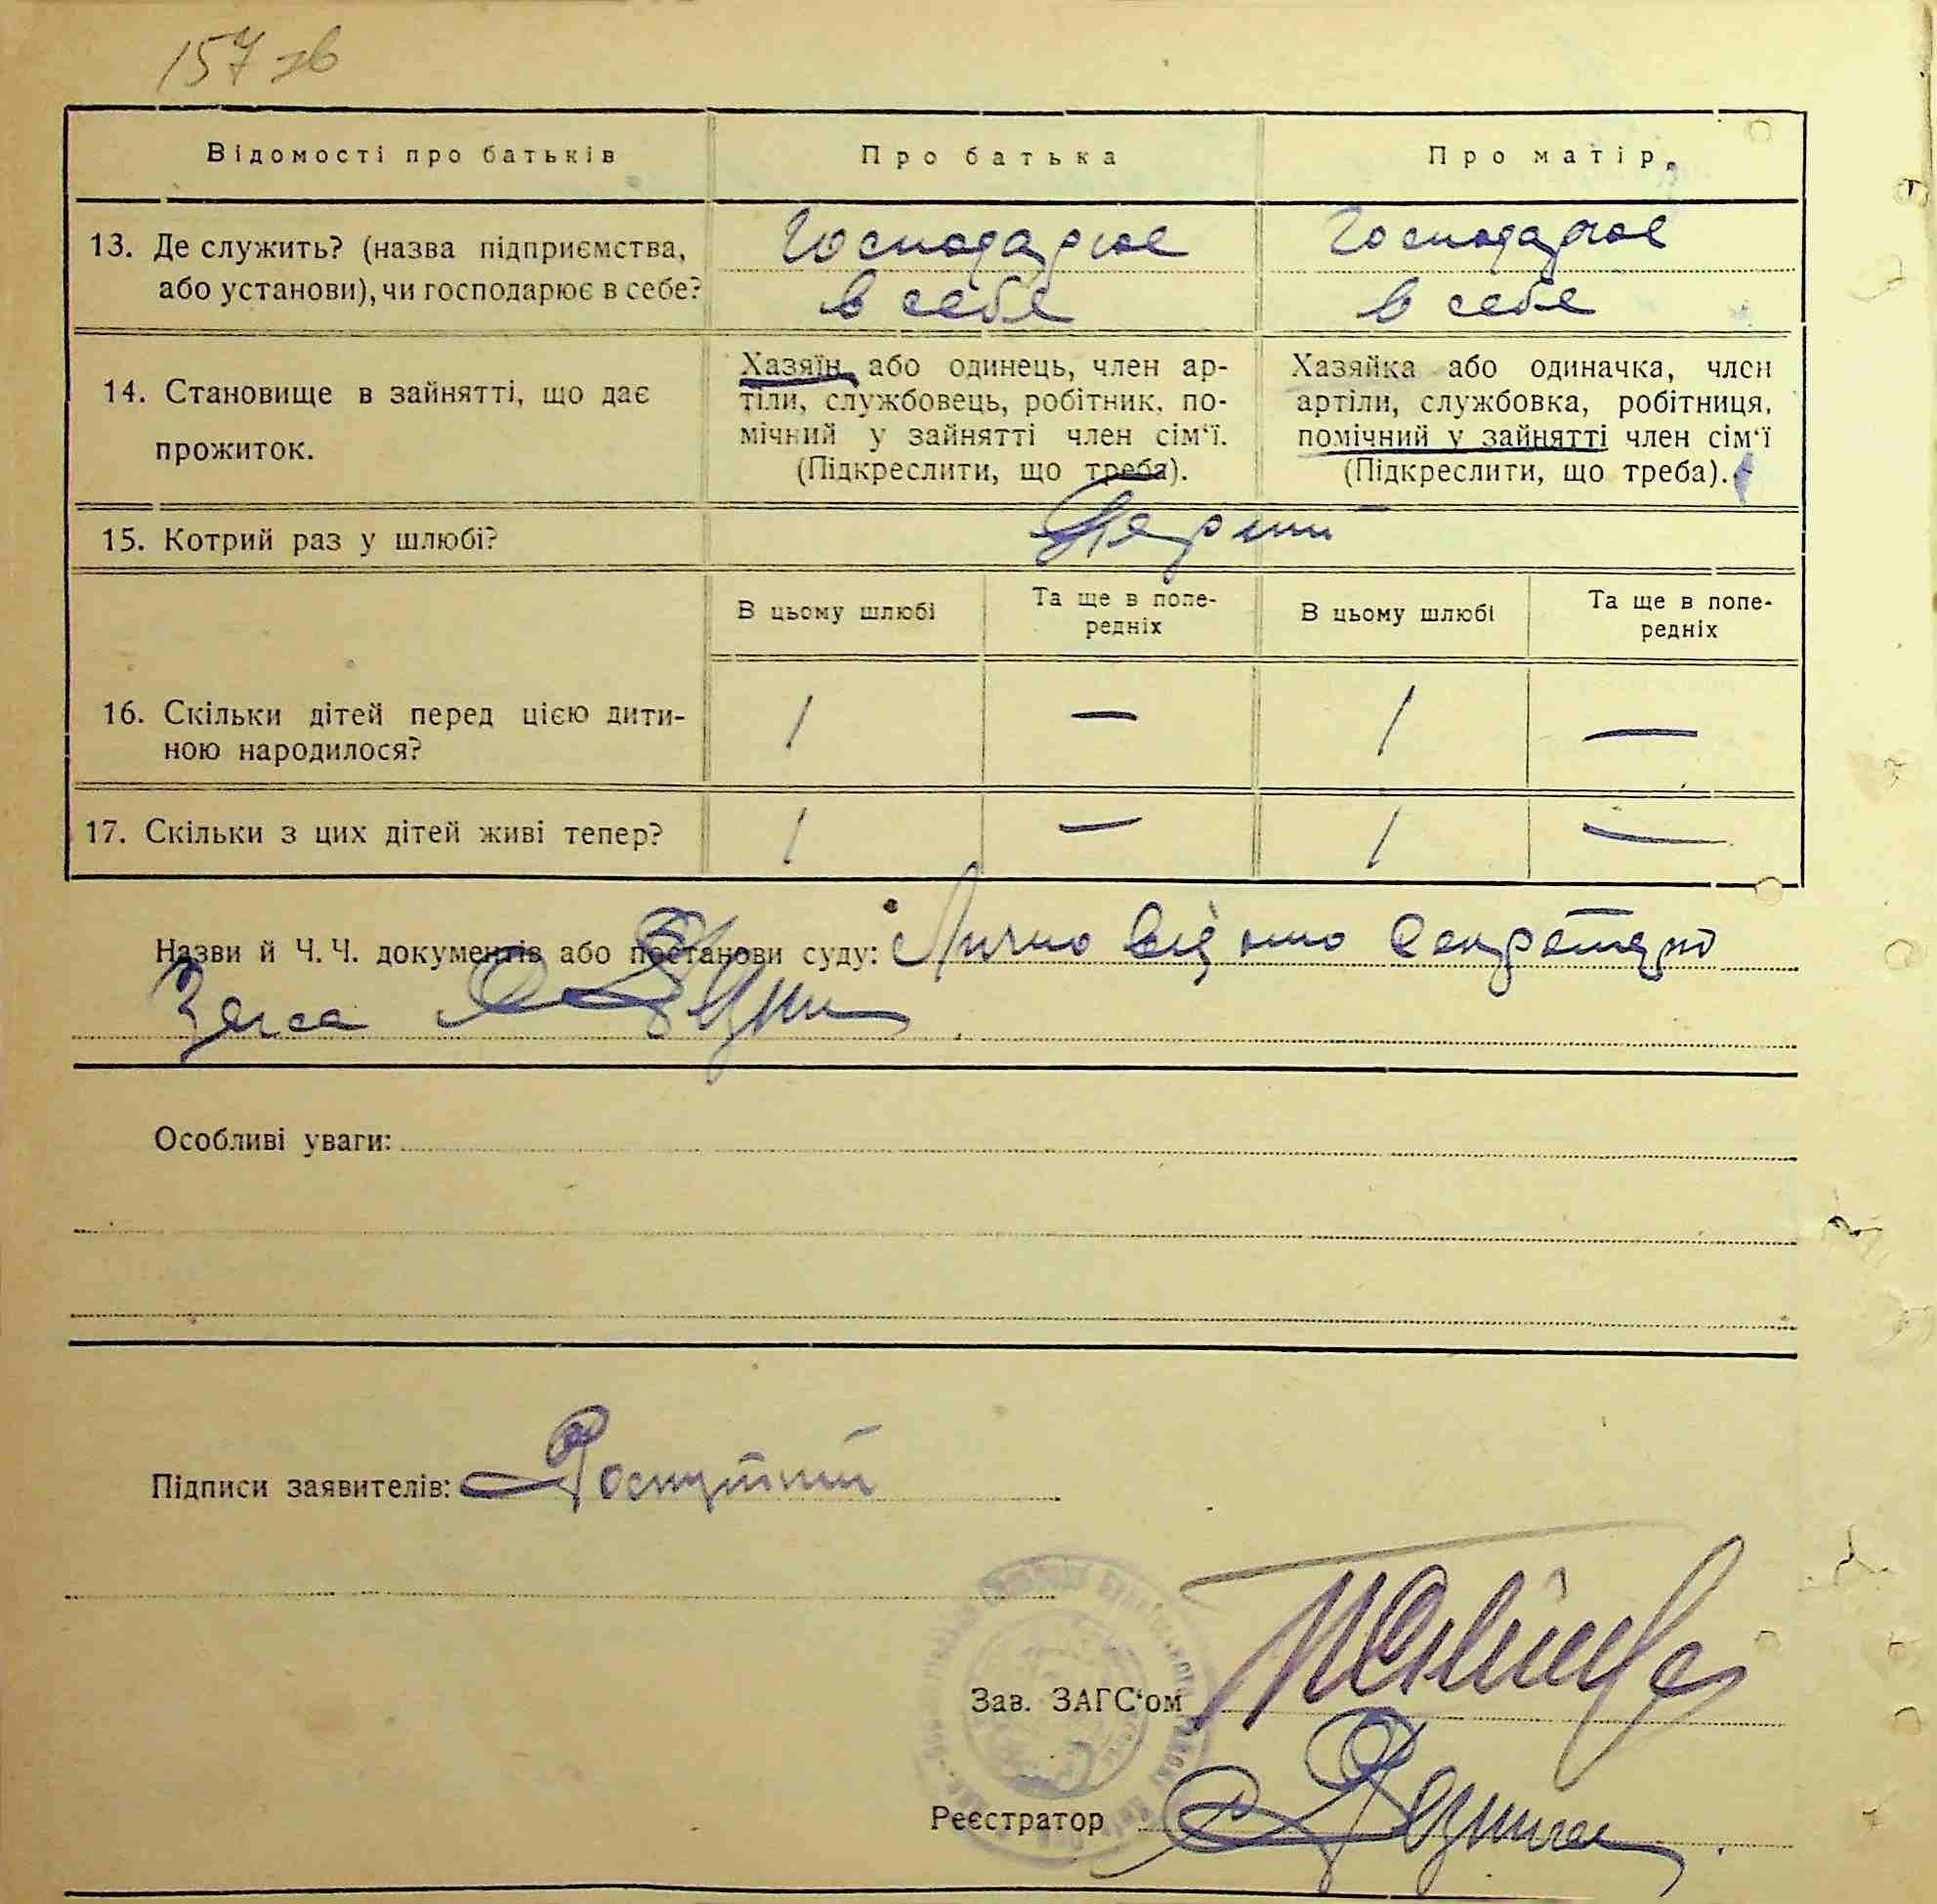 157 зв
Відомості про батьків
Про батька
Про матір
13. Де служить? (назва підприємства,
або установи), чи господарює в себе?
Господарює
в себе
Господарює
в себе
14. Становище в зайнятті, що дає
прожиток.
Хазяїн або одинець, член ар-
тіли, службовець, робітник, по-
мічний у зайнятті член сім‘ї.
(Підкреслити, що треба).
Хазяйка або одиначка, член
артіли, службовка, робітниця,
помічний у зайнятті член сім‘ї
(Підкреслити, що треба).
15. Котрий раз у шлюбі?
Перший
В цьому шлюбі
Та ще в попе-
редніх
В цьому шлюбі
Та ще в попе-
редніх
16. Скільки дітей перед цією дити-
ною народилося?
1 — 1 —
17. Скільки з цих дітей живі тепер?
1 — 1 —
Назви й Ч. Ч. документів або постанови суду: Лично відомо Секретарю
Загса
Особливі уваги:
Підписи заявителів: Роспутній
Зав. ЗАГС‘ом
Реєстратор